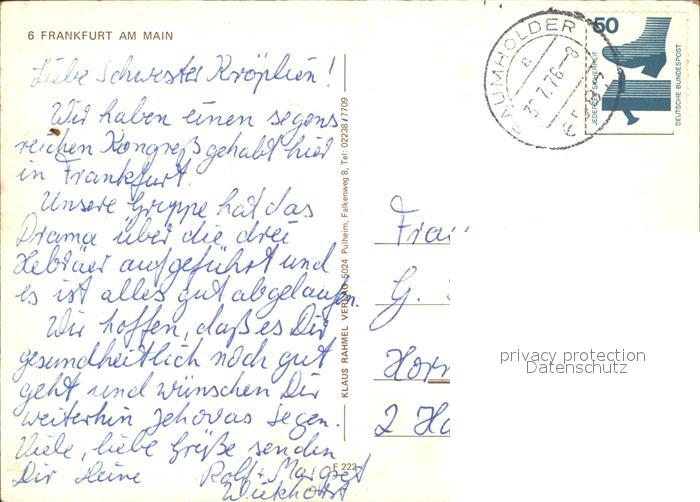 6 FRANKFURT AM MAIN
Liebe Schwester Kröplien!
Wir haben einen segens
reichen Kongreß gehabt hier
in Frankfurt.
Unsere Gruppe hat das
Drama über die drei
Hebräer aufgeführt und
es ist alles gut abgelaufen.
Wir hoffen, daß es Dir
gesundheitlich noch gut
geht und wünschen Dir
weiterhin Jehovas Segen.
Viele, liebe Grüße senden
Dir Heine Rolf + Margret
Wiekhorst
KLAUS RAHMEL VERLAG 5024 Pulheim, Falkenweg 8, Tel: 02238/7709
F 222
BAUMHOLDER
7.76-8
50
JEDERZEIT SICHERHEIT
DEUTSCHE BUNDESPOST
Frau
G.
2 Ha
privacy protection
Datenschutz